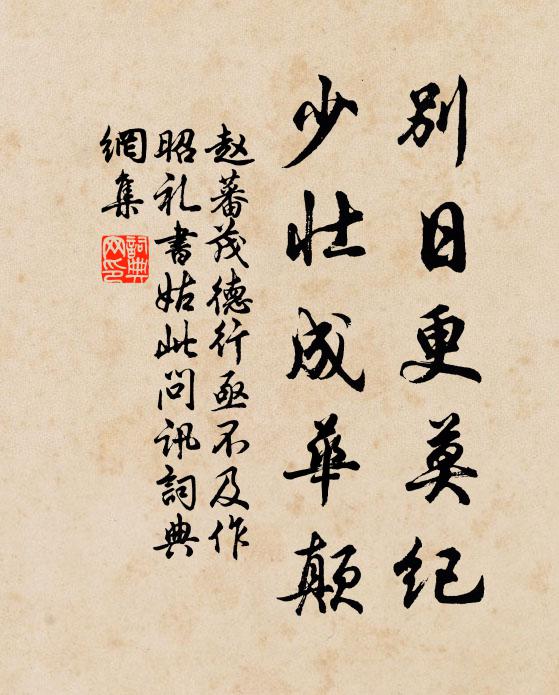 别日更莫纪
少壮成华颠
赵蕃茂德行亟不及作
昭礼书姑此问讯词典
網集
詞典網印